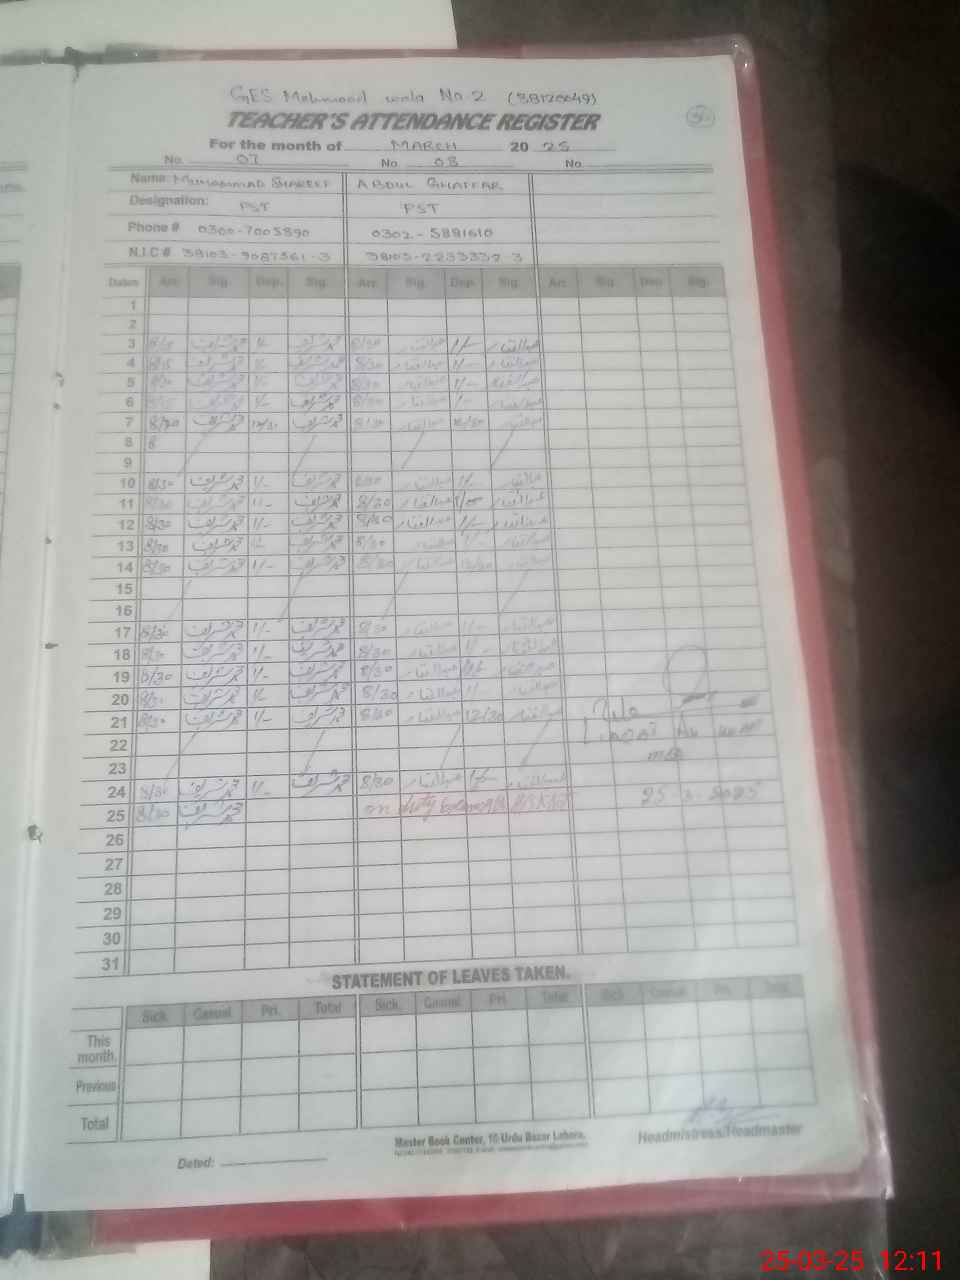 GES Mehmood wala No 2 (38120049)
TEACHER'S ATTENDANCE REGISTER
For the month of MARCH 20 25
No. 07 No 08 No
Name: MUHAMMAD SHAREEF ABDUL GHAFFAR
Designation: PST PST
Phone # 0300-7005890 0302-5891610
N.I.C # 38103-9087361-3 38103-2233332-3
Dates Arr. Sig. Dep. Sig. Arr. Sig. Dep. Sig. Arr. Sig. Dep Sig.
1
2
3 1/- عبدالغفار 1/- عبدالغفار
4 8/15 محمد شریف 1/- محمد شریف 8/30 عبدالغفار 1/- عبدالغفار
5 8/30 محمد شریف 1/- محمد شریف 8/30 عبدالغفار 1/- عبدالغفار
6 محمد شریف 1/- محمد شریف 8/30 عبدالغفار 1/- عبدالغفار
7 8/30 محمد شریف 12/30 محمد شریف 8/30 عبدالغفار 12/30 عبدالغفار
8 8
9
10 8/30 محمد شریف 1/- محمد شریف 8/30 عبدالغفار 1/- عبدالغفار
11 8/30 محمد شریف 1/- محمد شریف 8/30 عبدالغفار 1/00 عبدالغفار
12 8/30 محمد شریف 1/- محمد شریف 8/30 عبدالغفار 1/- عبدالغفار
13 8/30 محمد شریف 1/- محمد شریف 8/30 عبدالغفار 1/- عبدالغفار
14 8/30 محمد شریف 1/- محمد شریف 8/30 عبدالغفار 12/30 عبدالغفار
15
16
17 8/30 محمد شریف 1/- محمد شریف 8/30 عبدالغفار 1/- عبدالغفار
18 8/30 محمد شریف 1/- محمد شریف 8/30 عبدالغفار 1/- عبدالغفار
19 8/30 محمد شریف 1/- محمد شریف 8/30 عبدالغفار 1/- عبدالغفار
20 8/30 محمد شریف 1/- محمد شریف 8/30 عبدالغفار 1/- عبدالغفار
21 8/30 محمد شریف 1/- محمد شریف 8/30 عبدالغفار 12/30 عبدالغفار
22
23
24 8/30 محمد شریف 1/- محمد شریف 8/30 عبدالغفار 1/- عبدالغفار
25 8/30 محمد شریف on duty 25-3-2025
26
27
28
29
30
31
STATEMENT OF LEAVES TAKEN.
Sick. Casual. Pri. Total Sick. Casual. Pri Total Sick Casual Pri. Total
This month.
Previous
Total
Master Book Center, 10 Urdu Bazar Lahore.
Headmistress/Headmaster
Dated:
25-03-25 12:11